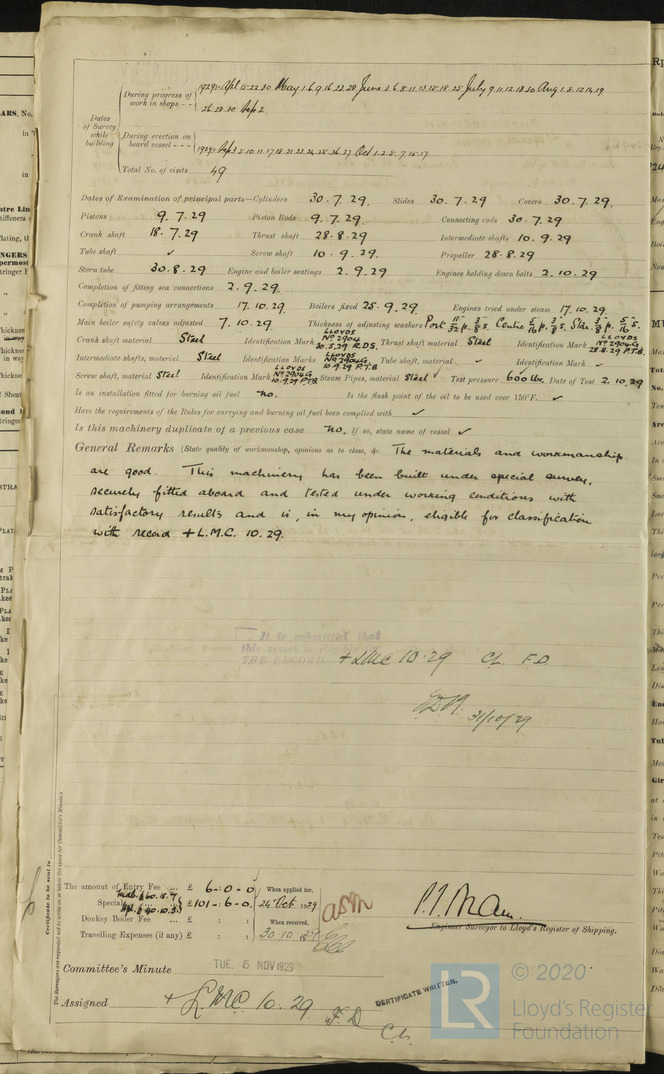 Dates of Survey while building
During progress of work in shops - - 1929:- Apl 15.22.30 May 1.6.9.16.22.28 June 3.6.8.11.13.15.18.25 July 9.11.12.18.30 Aug 1.8.12.14.19
26.28.30 Sep 2.
During erection on board vessel - - - 1929:- Sep 3.5.10.11.17.18.21.23.24.25.26.27. Oct 1.2.5.7.15.17
Total No. of visits 49
Dates of Examination of principal parts—Cylinders 30.7.29. Slides 30.7.29 Covers 30.7.29.
Pistons 9.7.29 Piston Rods 9.7.29. Connecting rods 30.7.29
Crank shaft 18.7.29 Thrust shaft 28.8.29 Intermediate shafts 10.9.29
Tube shaft ✓ Screw shaft 10.9.29. Propeller 28.8.29
Stern tube 30.8.29 Engine and boiler seatings 2.9.29 Engines holding down bolts 2.10.29
Completion of fitting sea connections 2.9.29.
Completion of pumping arrangements 17.10.29. Boilers fixed 25.9.29 Engines tried under steam 17.10.29.
Main boiler safety valves adjusted 7.10.29 Thickness of adjusting washers Port 11/32 p. 3/8 s. Centre 5/16 p. 3/8 s. Star. 3/8 p. 5/16 s.
Crank shaft material Steel Identification Mark LLOYDS No 2904 30.5.29 R.D.S. Thrust shaft material Steel Identification Mark LLOYDS No 2904G 28.8.29 P.T.B.
Intermediate shafts, material Steel Identification Marks LLOYDS No 2904G 10.9.29 P.T.B Tube shaft, material ✓ Identification Mark ✓
Screw shaft, material Steel Identification Mark LLOYDS No 2904G 10.9.29 P.T.B Steam Pipes, material Steel ✓ Test pressure 600 lbs. Date of Test 2.10.29
Is an installation fitted for burning oil fuel no. Is the flash point of the oil to be used over 150°F. ✓
Have the requirements of the Rules for carrying and burning oil fuel been complied with ✓
Is this machinery duplicate of a previous case no. If so, state name of vessel ✓
General Remarks (State quality of workmanship, opinions as to class, &c. The materials and workmanship
are good. This machinery has been built under special survey,
securely fitted aboard and tested under working conditions with
satisfactory results and is, in my opinion, eligible for classification
with record + L.M.C. 10.29.
It is submitted that
this vessel is
THE RECORD. + LMC 10.29 CL. F.D.
31/10/29
The amount of Entry Fee ... £ 6-:0-:0 When applied for,
Special £101-:6-:0 24 Oct 1929
Donkey Boiler Fee ... £ : : When received,
Travelling Expenses (if any) £ : : 30.10.29
Engineer Surveyor to Lloyd's Register of Shipping.
Committee's Minute TUE. 5 NOV 1929
Assigned + LMC 10.29 F.D. CL.
CERTIFICATE WRITTEN.
Certificate to be sent to
LR © 2020
Lloyd's Register
Foundation